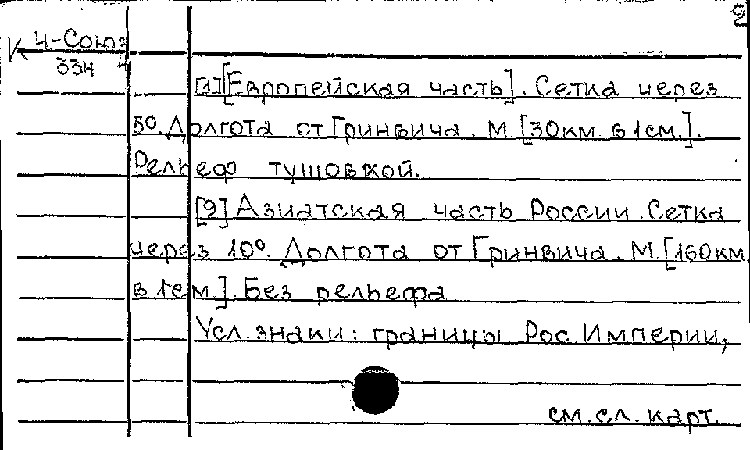 2
К 4-Союз
334 4
[1] [Европейская часть]. Сетка через
5°. Долгота от Гринвича. М [30км в 1см.].
Рельеф тушовкой.
[9] Азиатская часть России. Сетка
через 10°. Долгота от Гринвича. М. [160км
в 1см]. Без рельефа
Усл. знаки: границы Рос. Империи,
см. сл. карт.